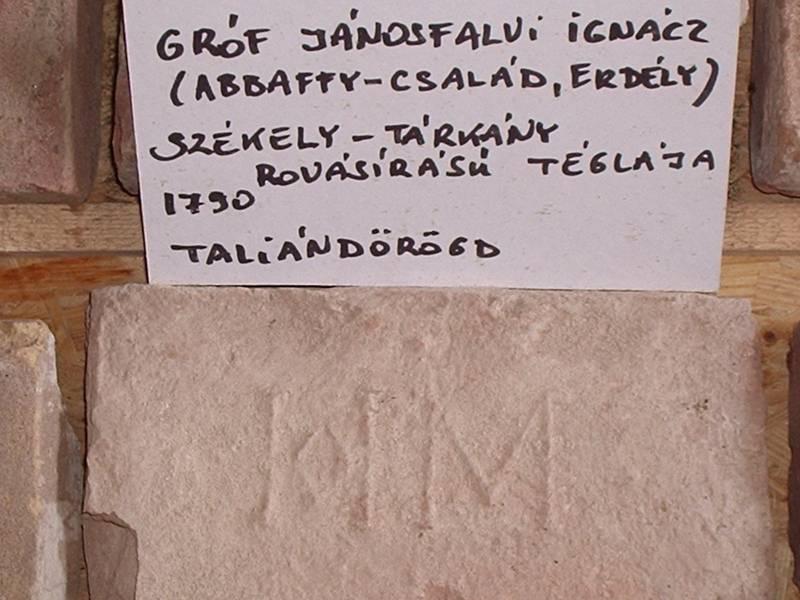 GRÓF JÁNOSFALVI IGNÁCZ
(ABBAFFY-CSALÁD, ERDÉLY)
SZÉKELY - TÁRKÁNY
ROVÁSÍRÁSÚ TÉGLÁJA
1790
TALIÁNDÖRÖGD